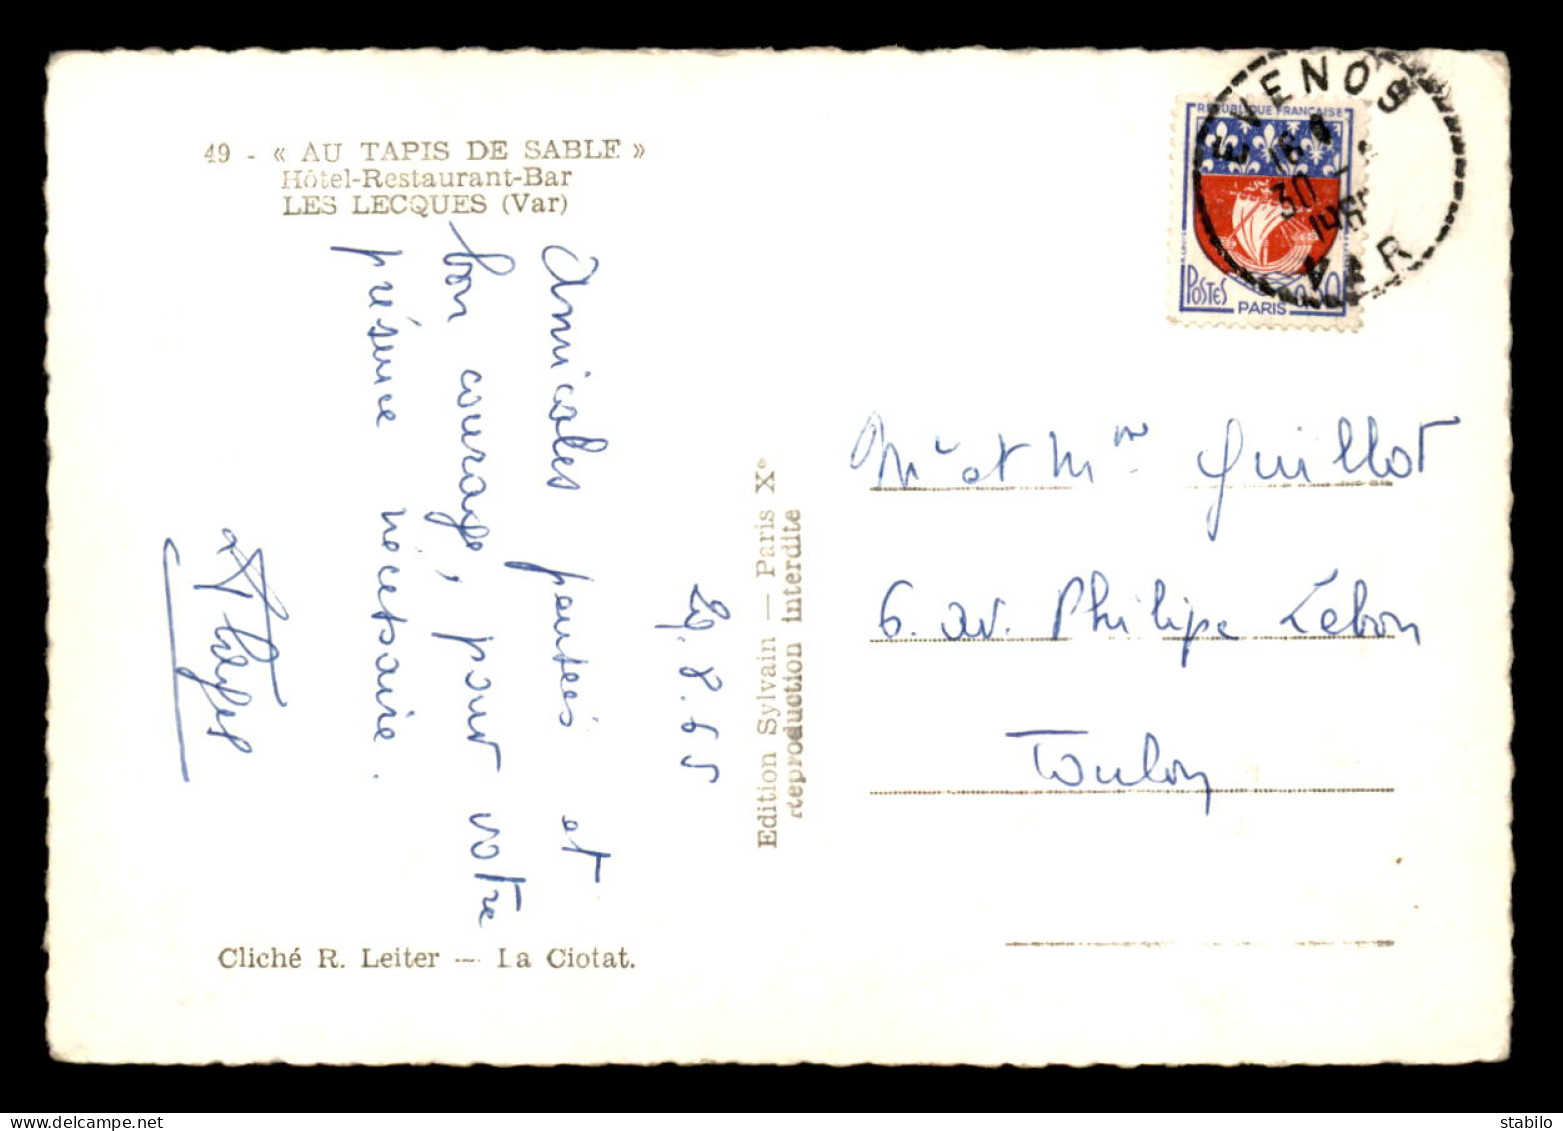 49 - « AU TAPIS DE SABLE »
Hôtel-Restaurant-Bar
LES LECQUES (Var)
29.8.65
Amicales pensées et
bon courage, pour votre
présence nécessaire.
Cliché R. Leiter — La Ciotat.
Edition Sylvain — Paris Xe
Reproduction interdite
REPUBLIQUE FRANÇAISE
POSTES
PARIS
0,30
EVENOS
18 H
30 -
196
VAR
Mr et Mme Guillot
6. av. Philipe Lebon
Toulon
stabilo